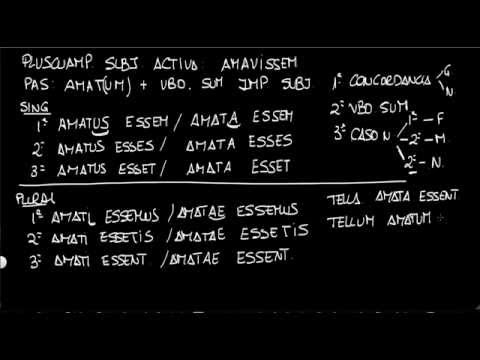 PLUSCUAMP. SUBJ ACTIVA: AMAVISSEM
PAS: AMAT(UM) + VBO. SUM IMP SUBJ.
SING
1ª AMATUS ESSEM / AMATA ESSEM
2ª AMATUS ESSES / AMATA ESSES
3ª AMATUS ESSET / AMATA ESSET
PLURAL
1ª AMATI ESSEMUS / AMATAE ESSEMUS
2ª AMATI ESSETIS / AMATAE ESSETIS
3ª AMATI ESSENT / AMATAE ESSENT.
1º CONCORDANCIA G
N
2º VBO SUM
3º CASO N 1ª - F
2ª - M
2ª - N.
TELLA AMATA ESSENT
TELLUM AMATUM